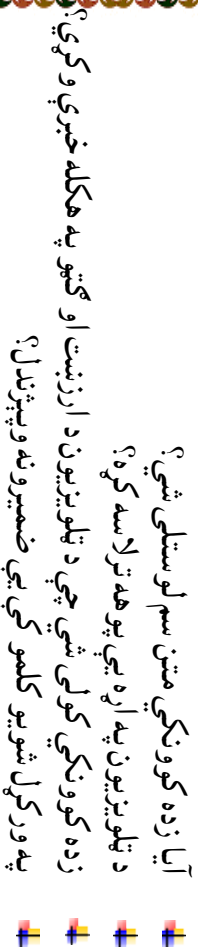 آیا زده کوونکي متن سم لوستلی شي؟
د ټلویزیون په اړه یې پوهه ترلاسه کړه؟
زده کوونکي کولی شي چې د ټلویزیون د ارزښت او ګټو په هکله خبرې وکړي؟
په ورکړل شویو کلمو کې یې ضمیرونه وپیژندل؟